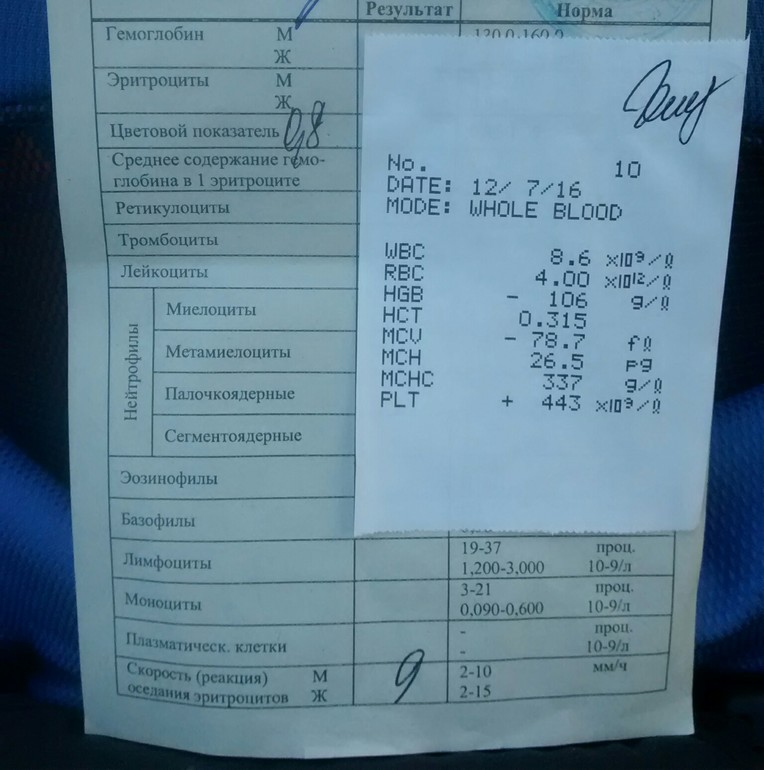 Результат Норма
Гемоглобин М
Ж
Эритроциты М
Ж
Цветовой показатель 0,8
Среднее содержание гемо-
глобина в 1 эритроците
Ретикулоциты
Тромбоциты
Лейкоциты
Нейтрофилы
Миелоциты
Метамиелоциты
Палочкоядерные
Сегментоядерные
Эозинофилы
Базофилы
Лимфоциты 19-37 проц.
1,200-3,000 10-9/л
Моноциты 3-21 проц.
0,090-0,600 10-9/л
Плазматическ. клетки - проц.
- 10-9/л
Скорость (реакция) М 9 2-10 мм/ч
оседания эритроцитов Ж 2-15
No. 10
DATE: 12/ 7/16
MODE: WHOLE BLOOD
WBC 8.6 x10⁹/ℓ
RBC 4.00 x10¹²/ℓ
HGB - 106 g/ℓ
HCT 0.315
MCV - 78.7 fℓ
MCH 26.5 pg
MCHC 337 g/ℓ
PLT + 443 x10⁹/ℓ